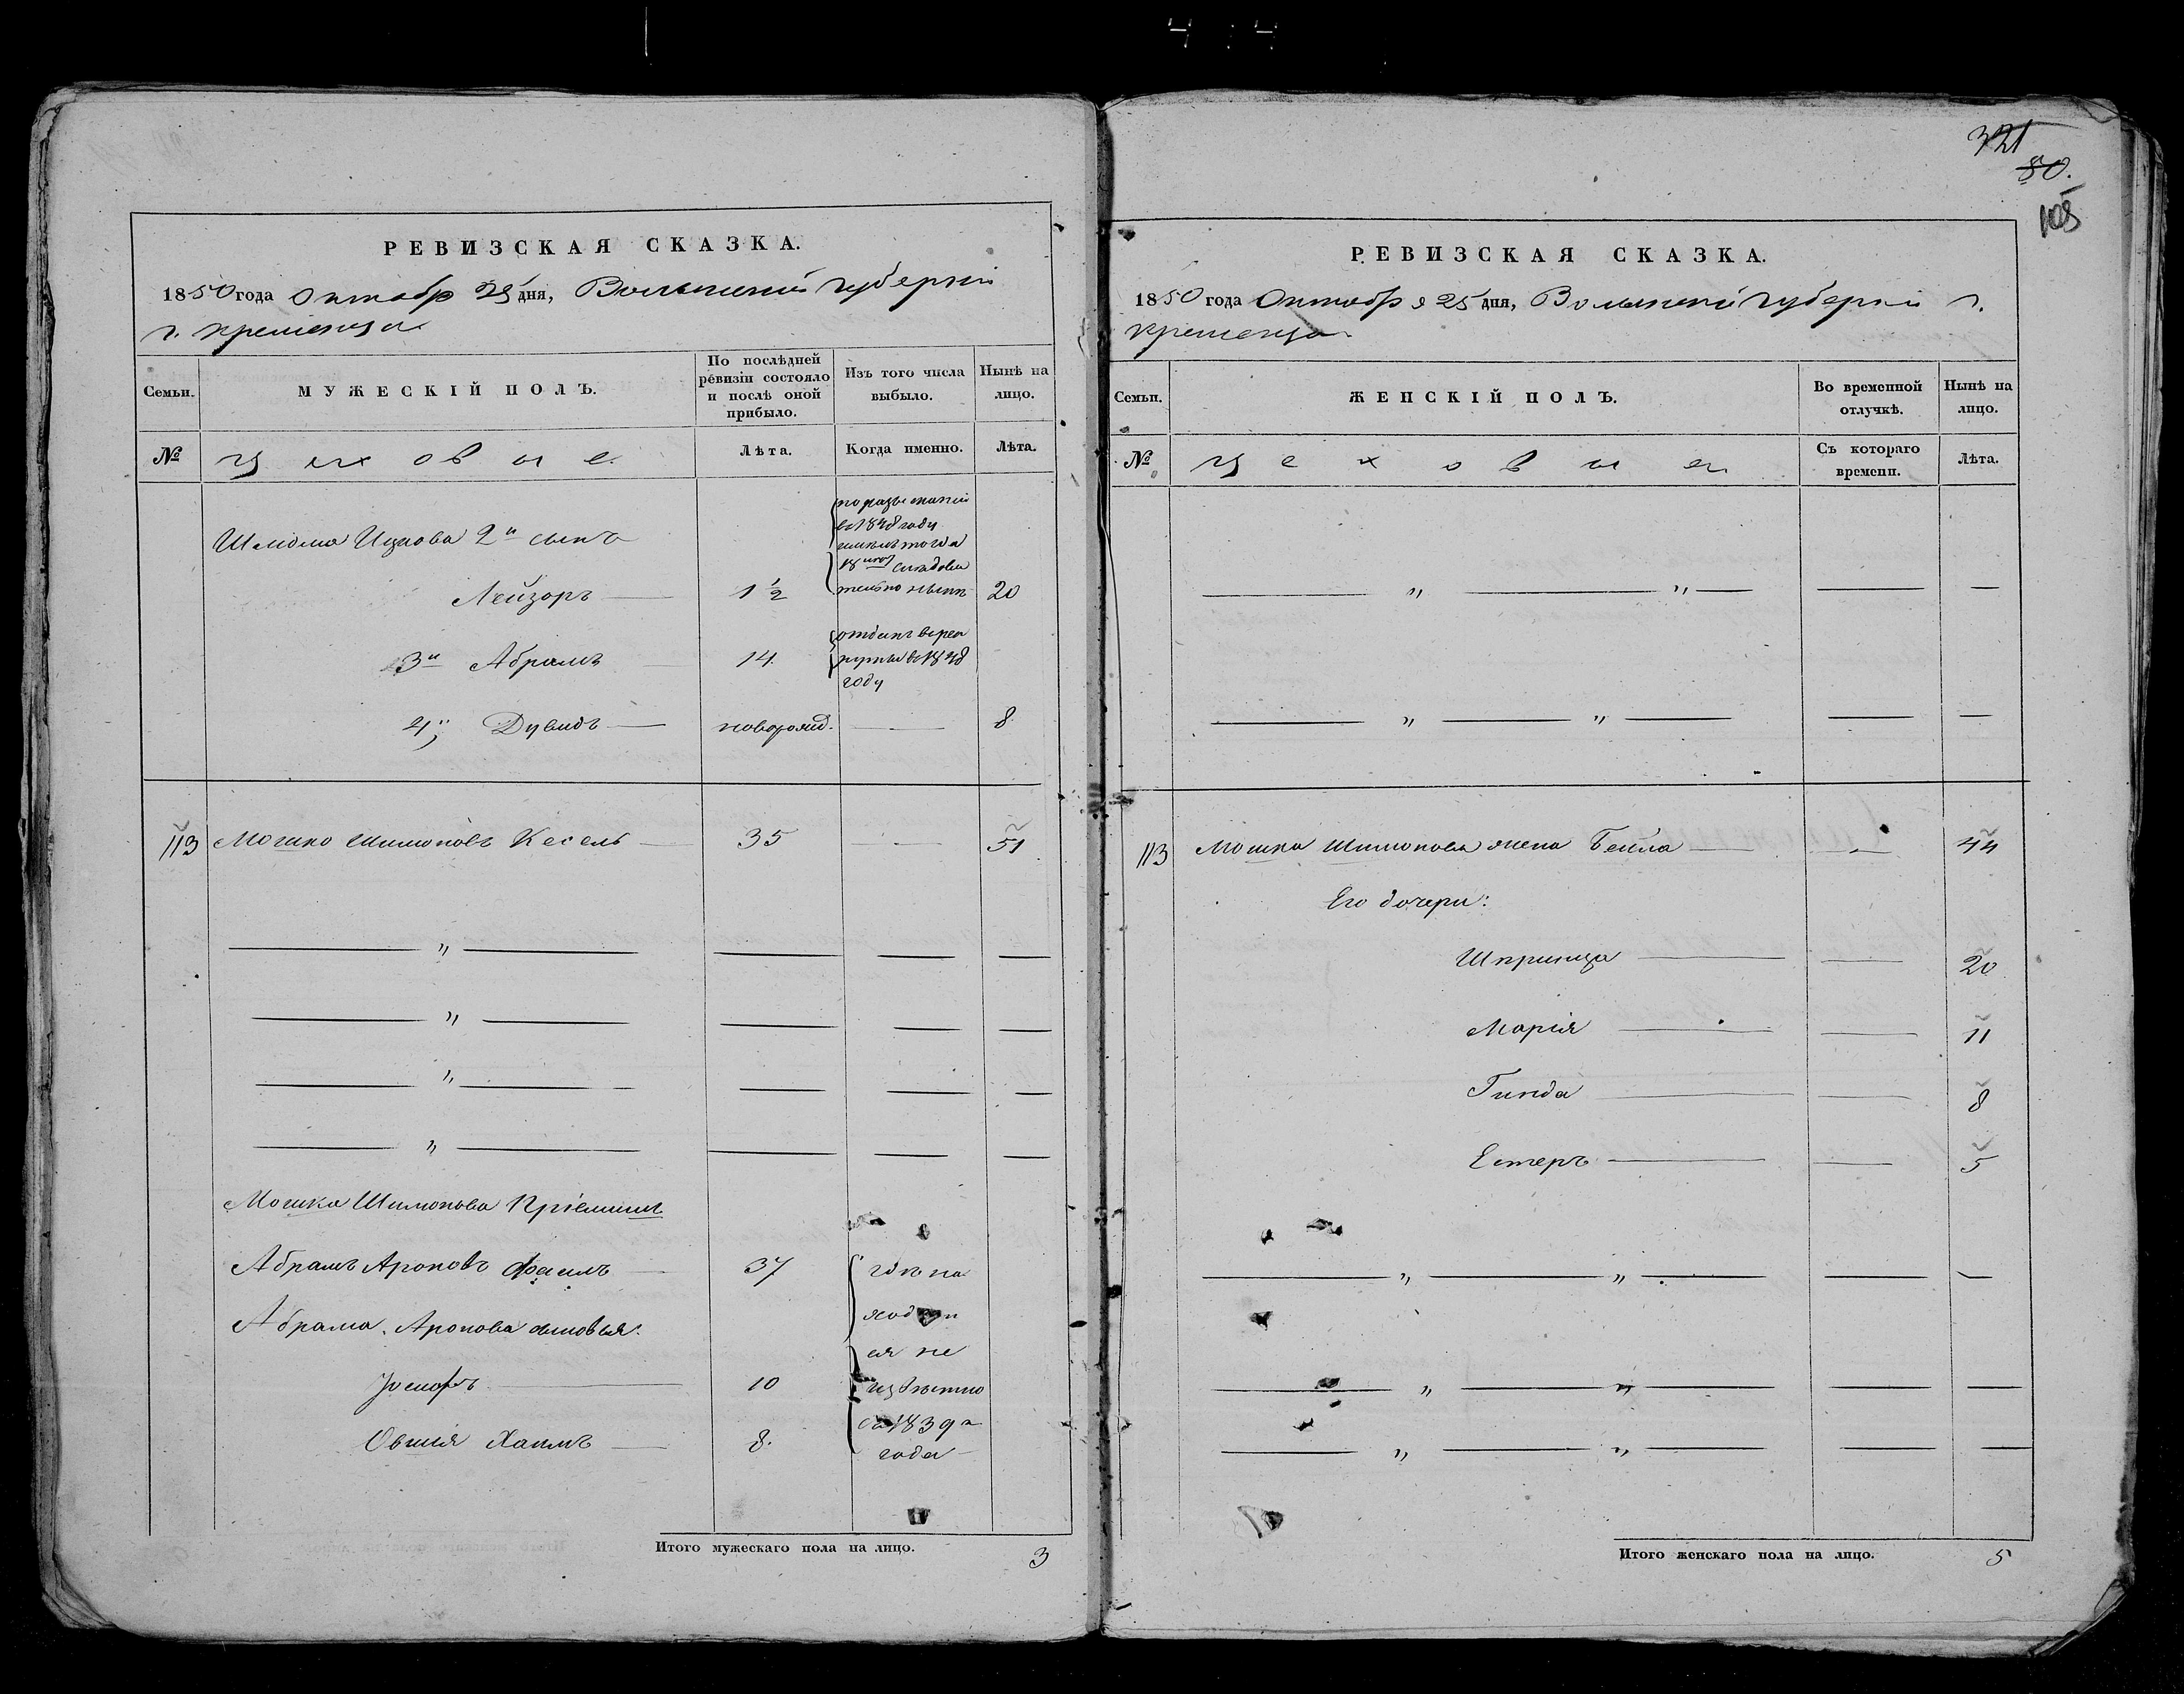 РЕВИЗСКАЯ СКАЗКА.
1850 года Октябр 25 дня, Волынской губерніи
г. Кременца
Семьи. МУЖЕСКІЙ ПОЛЪ. По послѣдней ревизіи состояло и послѣ оной прибыло. Изъ того числа выбыло. Нынѣ на лицо.
№ Цеховые. Лѣта. Когда именно. Лѣта.
Шлиома Ицкова 2й сынъ
по разысканій
в 1848 году
имелъ тогда
18 следова
тельно нынѣ
Лейзоръ 1 ½ 20
3й Абрамъ 14
отданъ в рек
руты в 1848
году
4й Дувидъ новорожд. 8
113 Мошко Шимоновъ Кесель 35 51
〃
〃
〃
〃
Мошка Шимонова Пріемыши
Абрамъ Ароновъ 37
Абрама Аронова сыновья:
Іосифъ 10
Овшія Хаимъ 8.
гдѣ на
ходят
ся не
извѣстно
съ 1839го
года
Итого мужескаго пола на лицо. 3
321
80.
108
РЕВИЗСКАЯ СКАЗКА.
1850 года Октября 25 дня, Волынской губерніи г.
Кременца
Семьи. ЖЕНСКІЙ ПОЛЪ. Во временной отлучкѣ. Нынѣ на лицо.
№ Цеховые Съ котораго времени. Лѣта.
〃 〃
〃 〃
113 Мошка Шимонова жена Бейла 44
Его дочери:
Шпринца 20
Марія 11
Гинда 8
Естеръ 5
〃 〃
〃 〃
〃 〃
Итого женскаго пола на лицо. 5